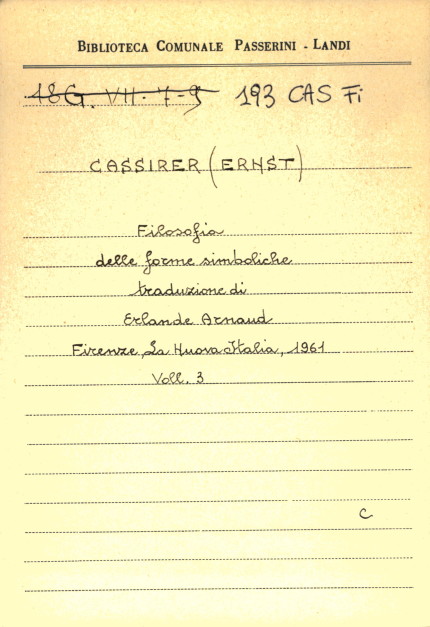 BIBLIOTECA COMUNALE PASSERINI - LANDI
18G. VII-7-9 193 CAS Fi
CASSIRER (ERNST)
Filosofia
delle forme simboliche
traduzione di
Erlande Arnaud
Firenze, La Nuova Italia, 1961
Voll. 3
C